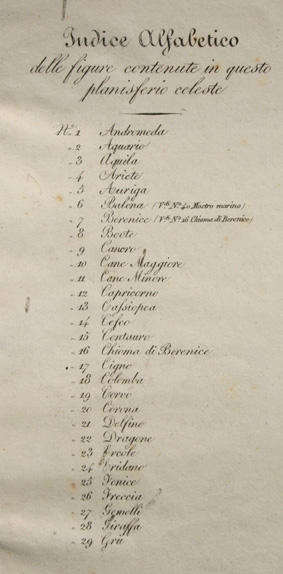 Indice Alfabetico
delle figure contenute in questo
planisferio celeste
N.º 1 Andromeda
2 Aquario
3 Aquila
4 Ariete
5 Auriga
6 Balena (V.di N.º 40 Mostro marino)
7 Berenice (V.di N.º 16 Chioma di Berenice)
8 Boote
9 Cancro
10 Cane Maggiore
11 Cane Minore
12 Capricorno
13 Cassiopea
14 Cefeo
15 Centauro
16 Chioma di Berenice
17 Cigno
18 Colomba
19 Corvo
20 Corona
21 Delfino
22 Dragone
23 Ercole
24 Eridano
25 Fenice
26 Freccia
27 Gemelli
28 Giraffa
29 Gru